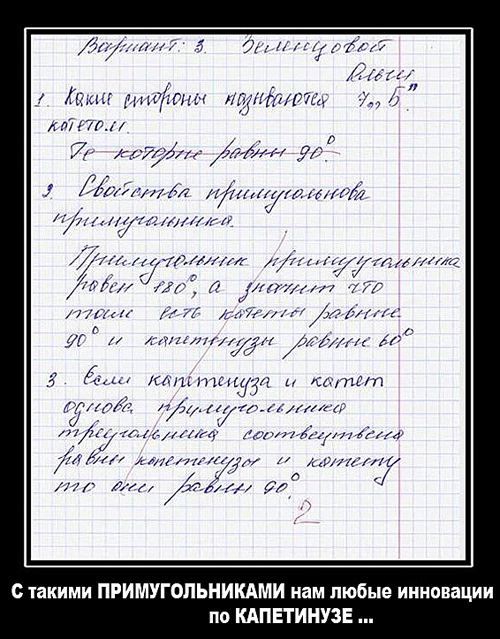 Вариант: 3. Зеленцовой
Ольги
1. Какие стороны называются 7„Б"
катетом.
Те которые равны 90°.
2. Свойства примугольнова
примугольника.
Примугольник примуугольника
равен 180°, а значит что
там есть катеты равные
90° и капетенузы равные 60°
3. Если капетенуза и катет
однова примугольника
треугольника соотвецтвена
равны капетенузы и катету
то они равны 90°.
2
С такими ПРИМУГОЛЬНИКАМИ нам любые инновации
по КАПЕТИНУЗЕ ...